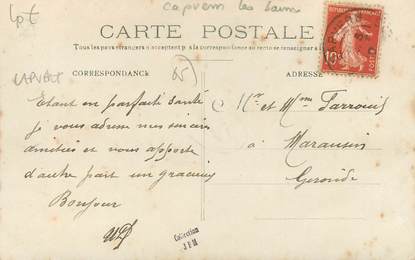 Lpt
Capvern les Bains
CARTE POSTALE
Tous les pays étrangers n'acceptent pas la correspondance au recto se renseigner à la
CORRESPONDANCE
ADRESSE
65
10c
Etant en parfaite santé
je vous adresse mes sincères
amitiés et vous apporte
d'autre part un gracieux
Bonjour
Mr et Mme Tarrouil
à
Maransin
Gironde
Collection
JFM